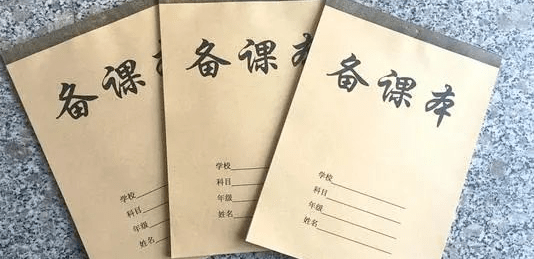 备课本
学校
科目
年级
姓名
备课本
学校
科目
年级
姓名
备课本
学校
科目
年级
姓名